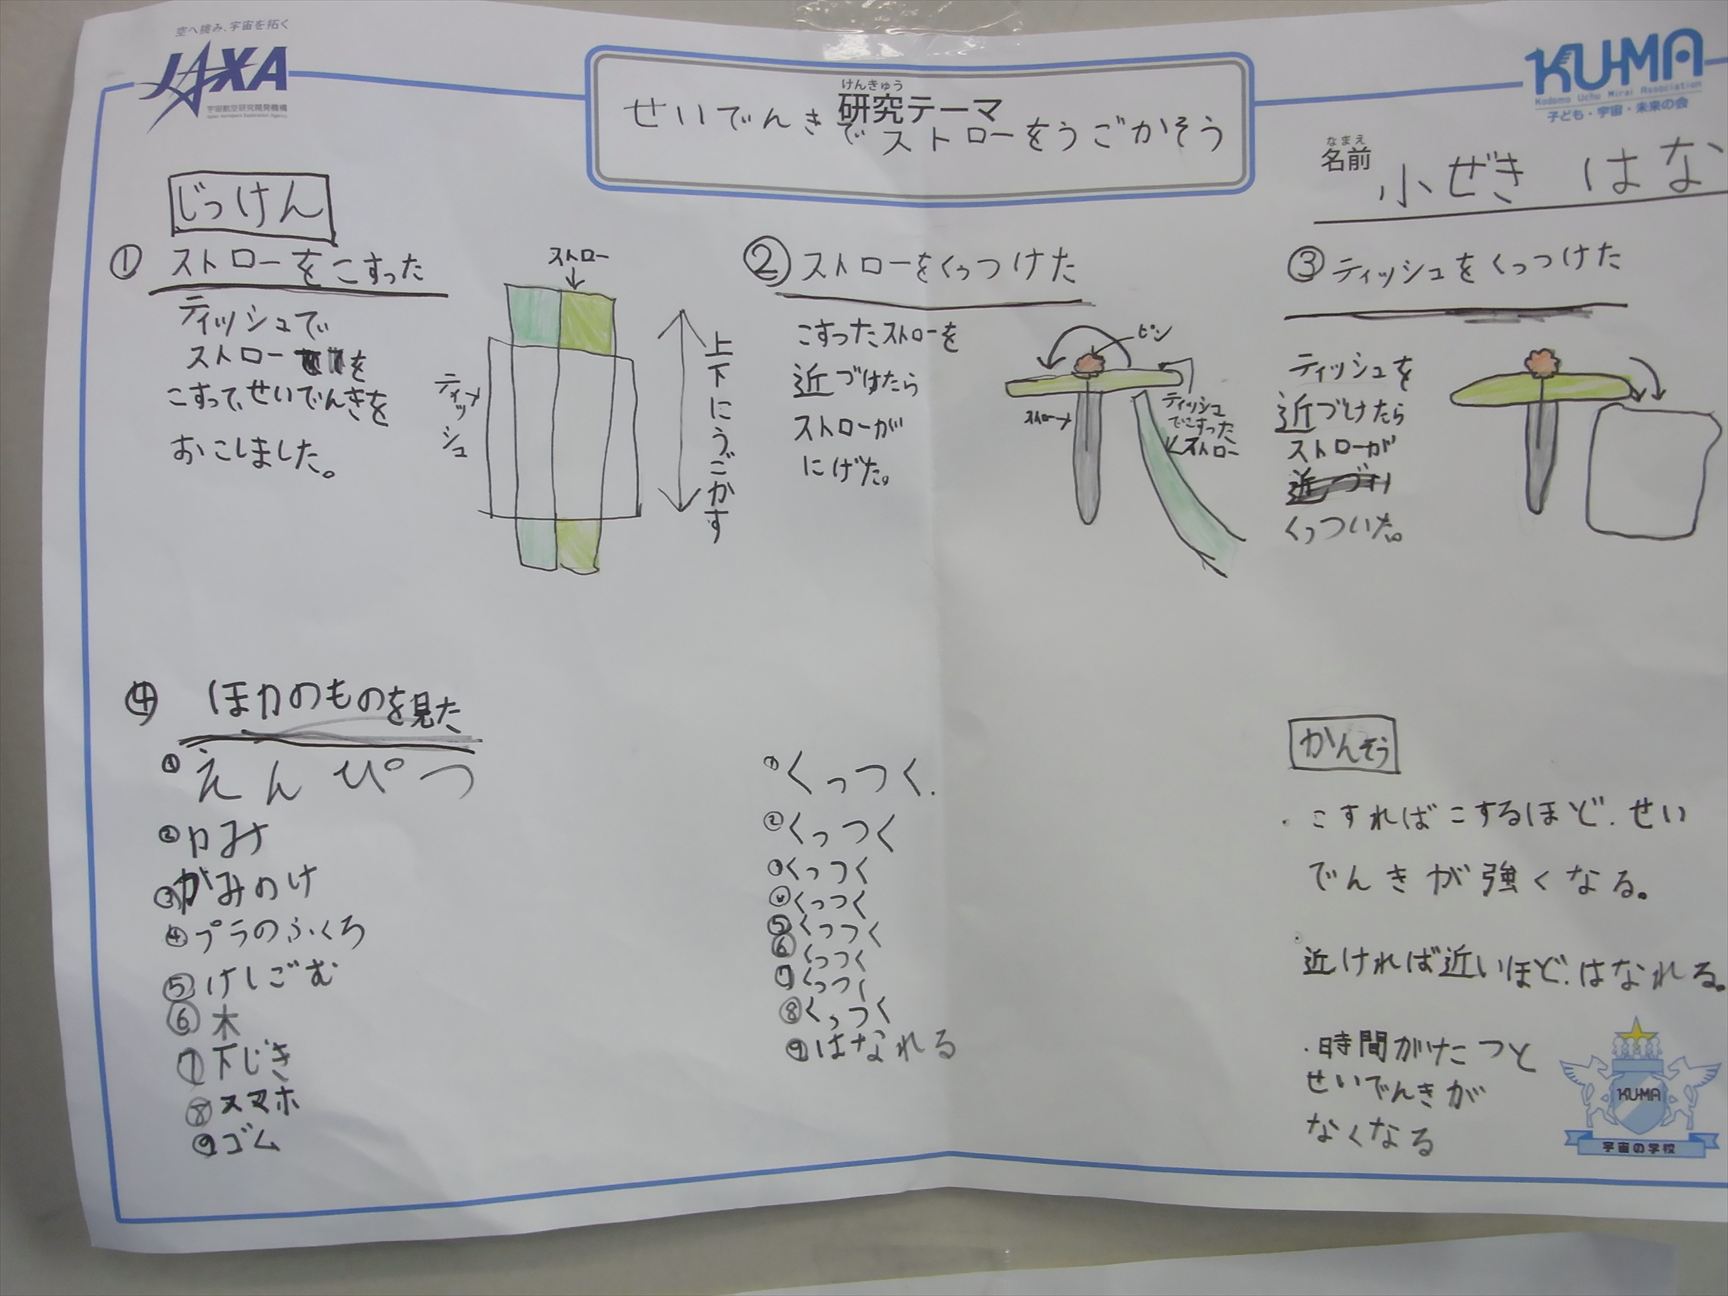 空へ挑み、宇宙を拓く
JAXA
宇宙航空研究開発機構
Japan Aerospace Exploration Agency
けんきゅう
研究テーマ
せいでんきでストローをうごかそう
KU-MA
Kodomo Uchu Mirai Association
子ども・宇宙・未来の会
なまえ
名前
小ぜき はな
じっけん
① ストローをこすった
ティッシュで
ストローを
こすって、せいでんきを
おこしました。
ストロー
ティッシュ
上下にうごかす
② ストローをくっつけた
こすったストローを
近づけたら
ストローが
にげた。
ピン
ストロー
ティッシュ
でこすった
ストロー
③ ティッシュをくっつけた
ティッシュを
近づけたら
ストローが
くっついた。
④ ほかのものを見た
① えんぴつ
② かみ
③ かみのけ
④ プラのふくろ
⑤ けしごむ
⑥ 木
⑦ 下じき
⑧ スマホ
⑨ ゴム
① くっつく.
② くっつく
③ くっつく
④ くっつく
⑤ くっつく
⑥ くっつく
⑦ くっつく
⑧ くっつく
⑨ はなれる
かんそう
・こすればこするほど.せい
でんきが強くなる。
・近ければ近いほど.はなれる。
・時間がたつと
せいでんきが
なくなる
KU-MA
宇宙の学校